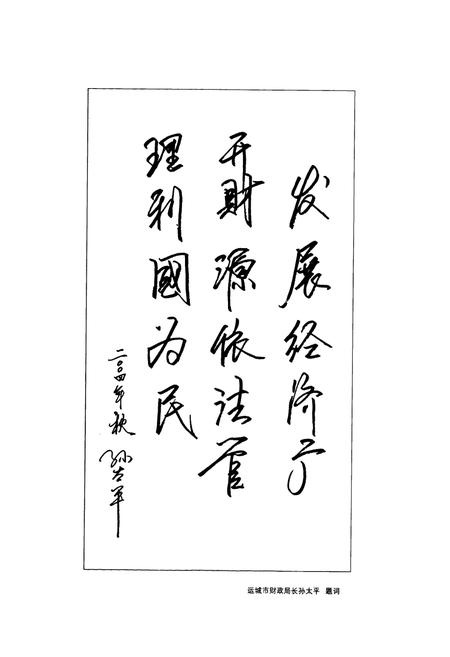 发展经济广
开财源依法管
理利国为民
二〇〇四年秋 孙太平
运城市财政局长孙太平 题词